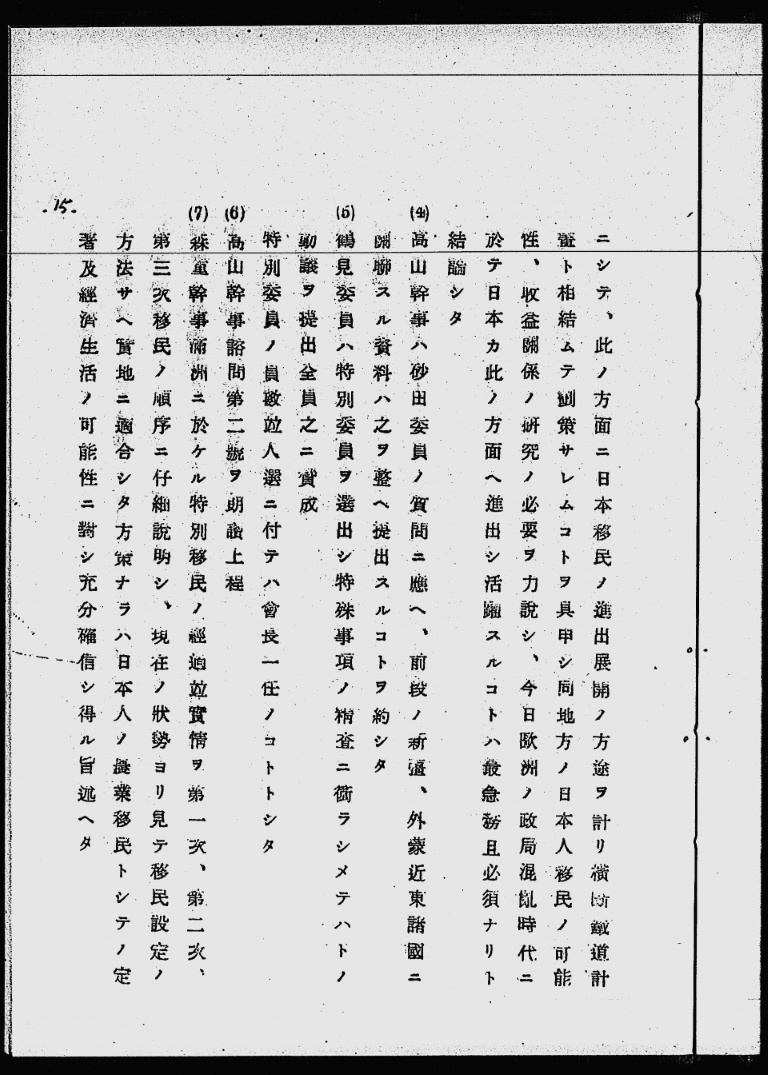 ニシテ、此ノ方面ニ日本移民ノ進出展開ノ方途ヲ計リ横斷鐵道計
畫ト相結ムテ劃策サレムコトヲ具申シ同地方ノ日本人移民ノ可能
性、收益關係ノ硏究ノ必要ヲ力說シ、今日歐洲ノ政局混亂時代ニ
於テ日本カ此ノ方面ヘ進出シ活躍スルコトハ最急務且必須ナリト
結論シタ
(4) 高山幹事ハ砂田委員ノ質問ニ應ヘ、前段ノ新疆、外蒙近東諸國ニ
關聯スル資料ハ之ヲ整ヘ提出スルコトヲ約シタ
(5) 鶴見委員ハ特別委員ヲ選出シ特殊事項ノ精査ニ當ラシメテハトノ
動議ヲ提出全員之ニ賛成
特別委員ノ員數竝人選ニ付テハ會長一任ノコトトシタ
(6) 高山幹事諮問第二號ヲ朗讀上程
(7) 森重幹事滿洲ニ於ケル特別移民ノ經過竝實情ヲ第一次、第二次、
第三次移民ノ順序ニ仔細說明シ、現在ノ狀勢ヨリ見テ移民設定ノ
方法サヘ實地ニ適合シタ方策ナラハ日本人ノ農業移民トシテノ定
著及經濟生活ノ可能性ニ對シ充分確信シ得ル旨述ヘタ
.15.